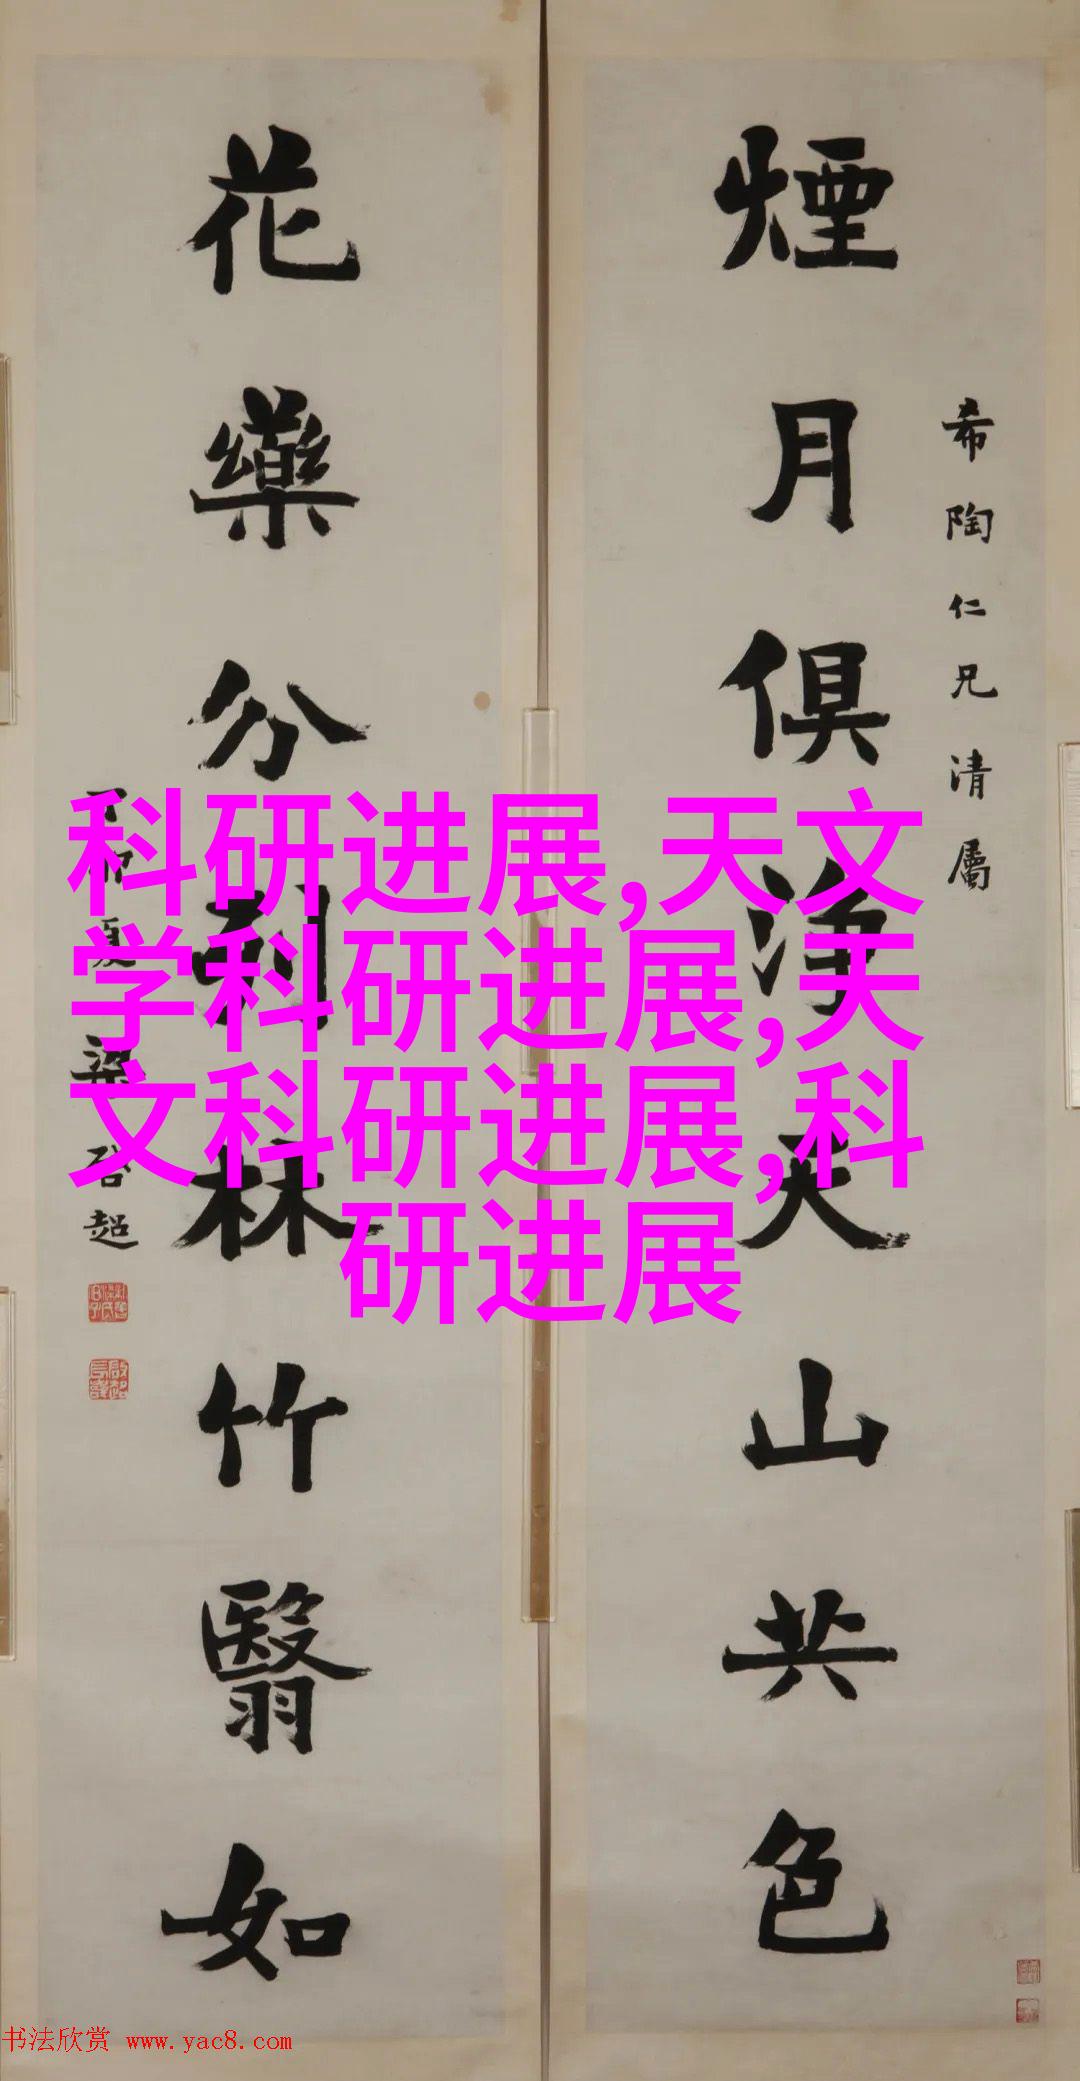 希陶仁兄清屬
煙月俱淨天山共色
花藥分列林竹翳如
丁卯夏梁啓超
科研进展,天文
学科研进展,天
文科研进展,科
研进展
书法欣赏 www.yac8.com